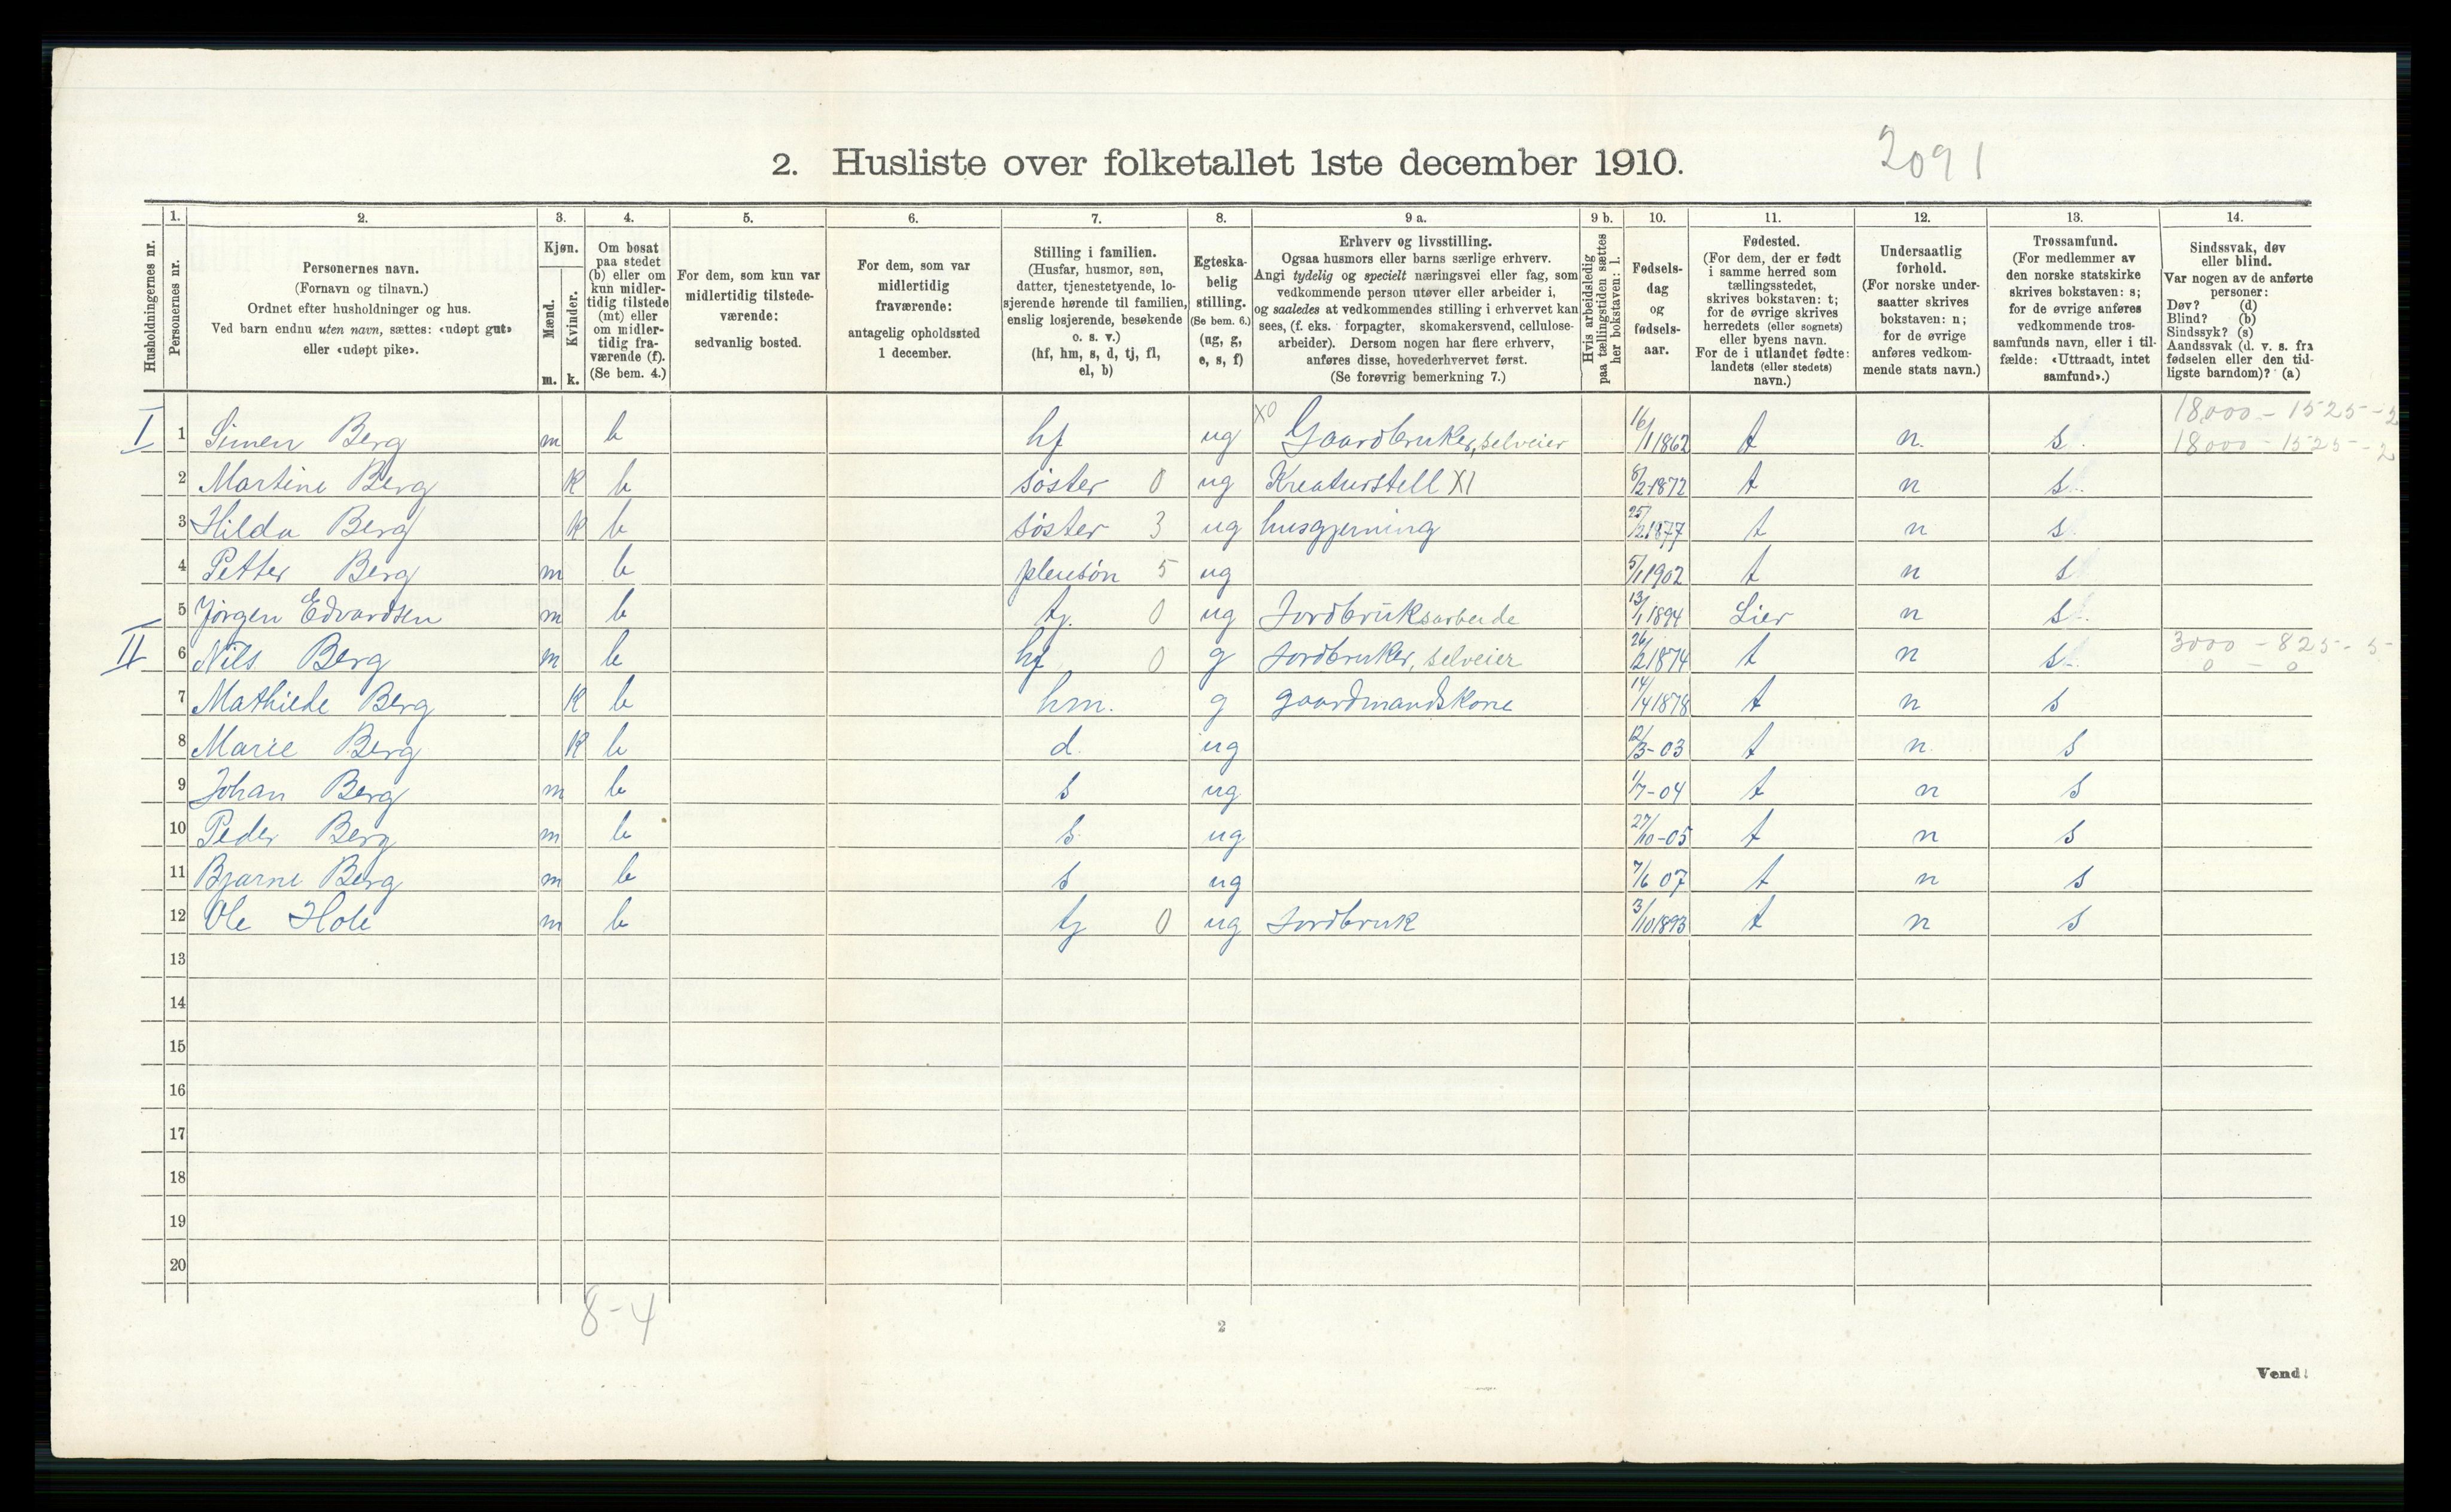 2. Husliste over folketallet 1ste december 1910. 2091
Husholdningernes nr.
1. Personernes nr.
2. Personernes navn.
(Fornavn og tilnavn.)
Ordnet efter husholdninger og hus.
Ved barn endnu uten navn, sættes: «udøpt gut»
eller «udøpt pike».
3. Kjøn.
Mænd. m.
Kvinder. k.
4. Om bosat
paa stedet
(b) eller om
kun midler-
tidig tilstede
(mt) eller
om midler-
tidig fra-
værende (f).
(Se bem. 4.)
5. For dem, som kun var
midlertidig tilstede-
værende:
sedvanlig bosted.
6. For dem, som var
midlertidig
fraværende:
antagelig opholdssted
1 december.
7. Stilling i familien.
(Husfar, husmor, søn,
datter, tjenestetyende, lo-
sjerende hørende til familien,
enslig losjerende, besøkende
o. s. v.)
(hf, hm, s, d, tj, fl,
el, b)
8. Egteska-
belig
stilling.
(Se bem. 6.)
(ug, g,
e, s, f)
9 a. Erhverv og livsstilling.
Ogsaa husmors eller barns særlige erhverv.
Angi tydelig og specielt næringsvei eller fag, som
vedkommende person utøver eller arbeider i,
og saaledes at vedkommendes stilling i erhvervet kan
sees, (f. eks. forpagter, skomakersvend, cellulose-
arbeider). Dersom nogen har flere erhverv,
anføres disse, hovederhvervet først.
(Se forøvrig bemerkning 7.)
9 b. Hvis arbeidsledig
paa tællingstiden sættes
her bokstaven: l.
10. Fødsels-
dag
og
fødsels-
aar.
11. Fødested.
(For dem, der er født
i samme herred som
tællingsstedet,
skrives bokstaven: t;
for de øvrige skrives
herredets (eller sognets)
eller byens navn.
For de i utlandet fødte:
landets (eller stedets)
navn.)
12. Undersaatlig
forhold.
(For norske under-
saatter skrives
bokstaven: n;
for de øvrige
anføres vedkom-
mende stats navn.)
13. Trossamfund.
(For medlemmer av
den norske statskirke
skrives bokstaven: s;
for de øvrige anføres
vedkommende tros-
samfunds navn, eller i til-
fælde: «Uttraadt, intet
samfund».)
14. Sindssvak, døv
eller blind.
Var nogen av de anførte
personer:
Døv? (d)
Blind? (b)
Sindssyk? (s)
Aandssvak (d. v. s. fra
fødselen eller den tid-
ligste barndom)? (a)
18,000 - 1525 - 2
I 1 Simen Berg m b hf ug X0 Gaardbruker, selveier 16/1 1862 t n. s. 18000 - 1525 - 2
2 Martine Berg K b søster 0 ug Kreaturstell X1 8/2-1872 t n s.
3 Hilda Berg K b søster 3 ug husgjerning 25/2 1877 t n s.
4 Petter Berg m b pleiesøn 5 ug 5/1 1902 t n s
5 Jørgen Edvardsen m b tj. 0 ug Jordbruksarbeide 13/1 1894 Lier n s.
II 6 Nils Berg m b hf 0 g Jordbruker, selveier 26/2 1874 t n s. 3000 - 825 - 5-
0 - 0
7 Mathilde Berg K b hm. g gaardmandskone 14/4 1878 t n s
8 Marie Berg K b d. ug 12/3-03 t n. s
9 Johan Berg m b s ug 1/7-04 t n s
10 Peder Berg m b s ug 27/10-05 t n s
11 Bjarne Berg m b s ug 7/6 07 t n s
12 Ole Hole m b tj 0 ug Jordbruk 3/10 1893 t n s
13
14
15
16
17
18
19
20
8-4
2
Vend!